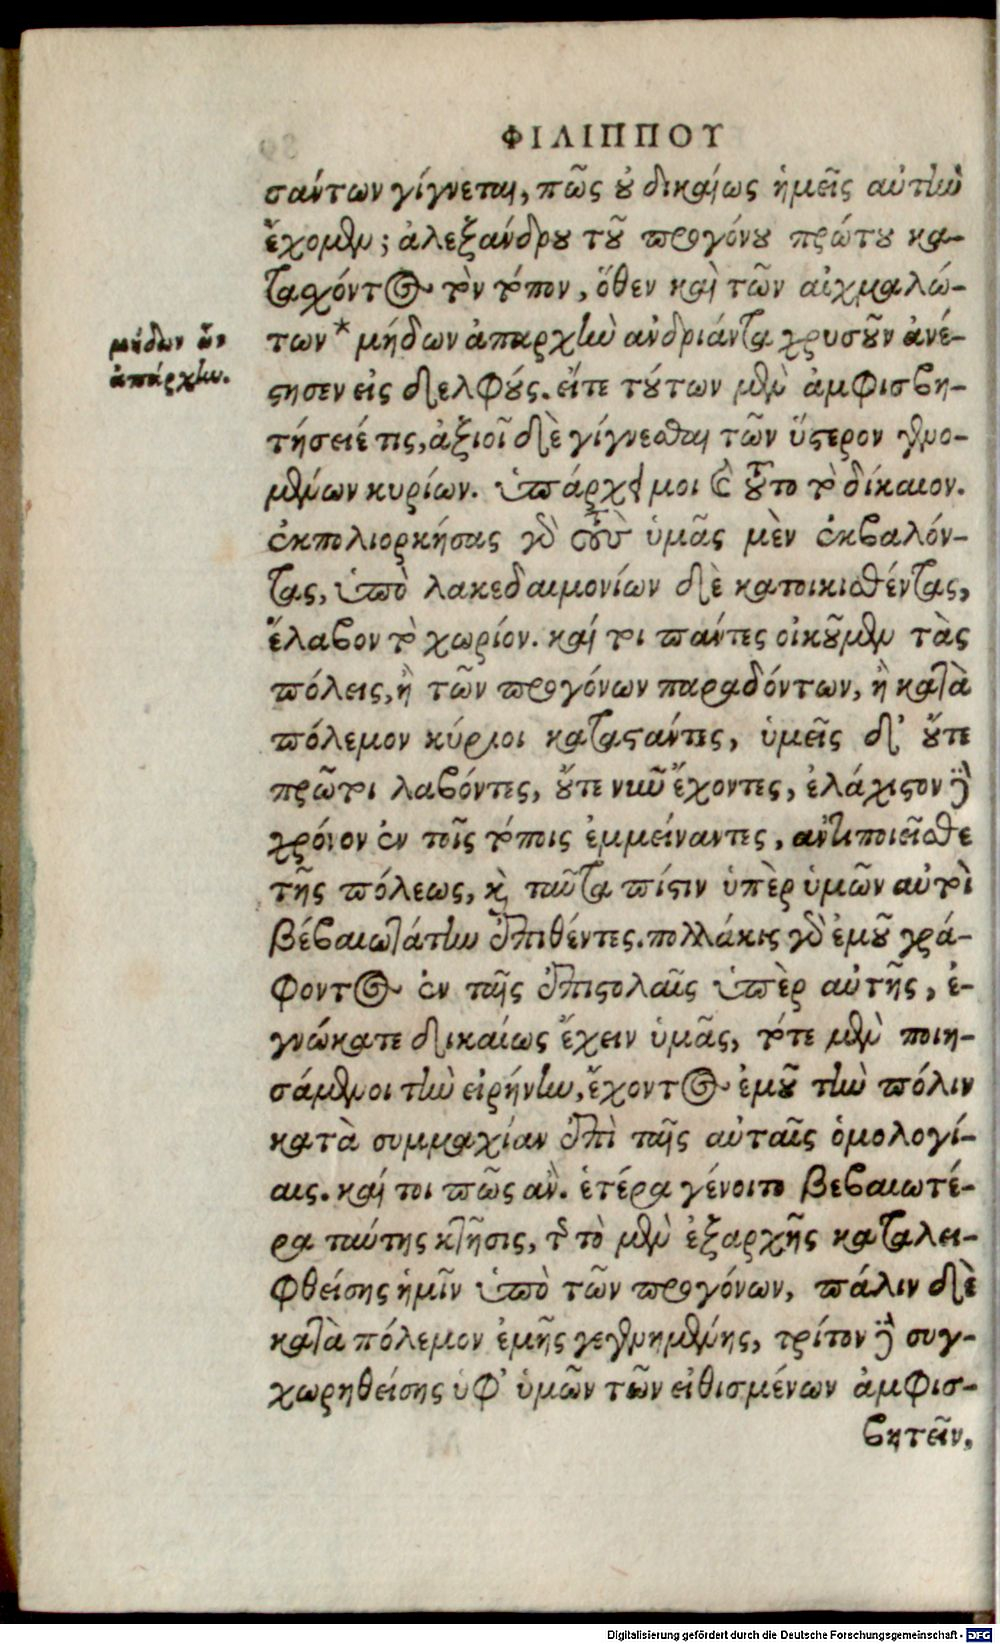 ΦΙΛΙΠΠΟΥ
σάντων γίγνεται, πῶς οὐ δικαίως ἡμεῖς αὐτὴν
ἔχομεν; ἀλεξάνδρου τοῦ προγόνου πρώτου κα-
τασχόντος τὸν τόπον, ὅθεν καὶ τῶν αἰχμαλώ-
των * μήδων ἀπαρχὴν ἀνδριάντα χρυσοῦν ἀνέ-
μήδων ὧν
ἀπάρχην.
στησεν εἰς δελφούς. εἴτε τούτων μὲν ἀμφισβη-
τήσειέ τις, ἀξιοῖ δὲ γίγνεσθαι τῶν ὕστερον γενο-
μένων κυρίων. ὑπάρχει μοι καὶ τοῦτο τὸ δίκαιον.
ἐκπολιορκήσας γὰρ τοὺς ὑμᾶς μὲν ἐκβαλόν-
τας, ὑπὸ λακεδαιμονίων δὲ κατοικισθέντας,
ἔλαβον τὸ χωρίον. καίτοι πάντες οἰκοῦμεν τὰς
πόλεις, ἢ τῶν προγόνων παραδόντων, ἢ κατὰ
πόλεμον κύριοι καταστάντες, ὑμεῖς δ' οὔτε
πρῶτοι λαβόντες, οὔτε νῦν ἔχοντες, ἐλάχιστον δὲ
χρόνον ἐν τοῖς τόποις ἐμμείναντες, ἀντιποιεῖσθε
τῆς πόλεως, καὶ ταῦτα πίστιν ὑπὲρ ὑμῶν αὐτοὶ
βεβαιωτάτην ἐπιθέντες. πολλάκις γὰρ ἐμοῦ γρά-
φοντος ἐν ταῖς ἐπιστολαῖς ὑπὲρ αὐτῆς, ἐ-
γνώκατε δικαίως ἔχειν ὑμᾶς, τότε μὲν ποιη-
σάμενοι τὴν εἰρήνην, ἔχοντος ἐμοῦ τὴν πόλιν
κατὰ συμμαχίαν ἐπὶ ταῖς αὐταῖς ὁμολογί-
αις. καί τοι πῶς ἂν. ἑτέρα γένοιτο βεβαιωτέ-
ρα ταύτης κτῆσις, τῆς τὸ μὲν ἐξαρχῆς καταλει-
φθείσης ἡμῖν ὑπὸ τῶν προγόνων, πάλιν δὲ
κατὰ πόλεμον ἐμῆς γεγενημένης, τρίτον δὲ συγ-
χωρηθείσης ὑφ' ὑμῶν τῶν εἰθισμένων ἀμφισ-
βητεῖν,
Digitalisierung gefördert durch die Deutsche Forschungsgemeinschaft - DFG